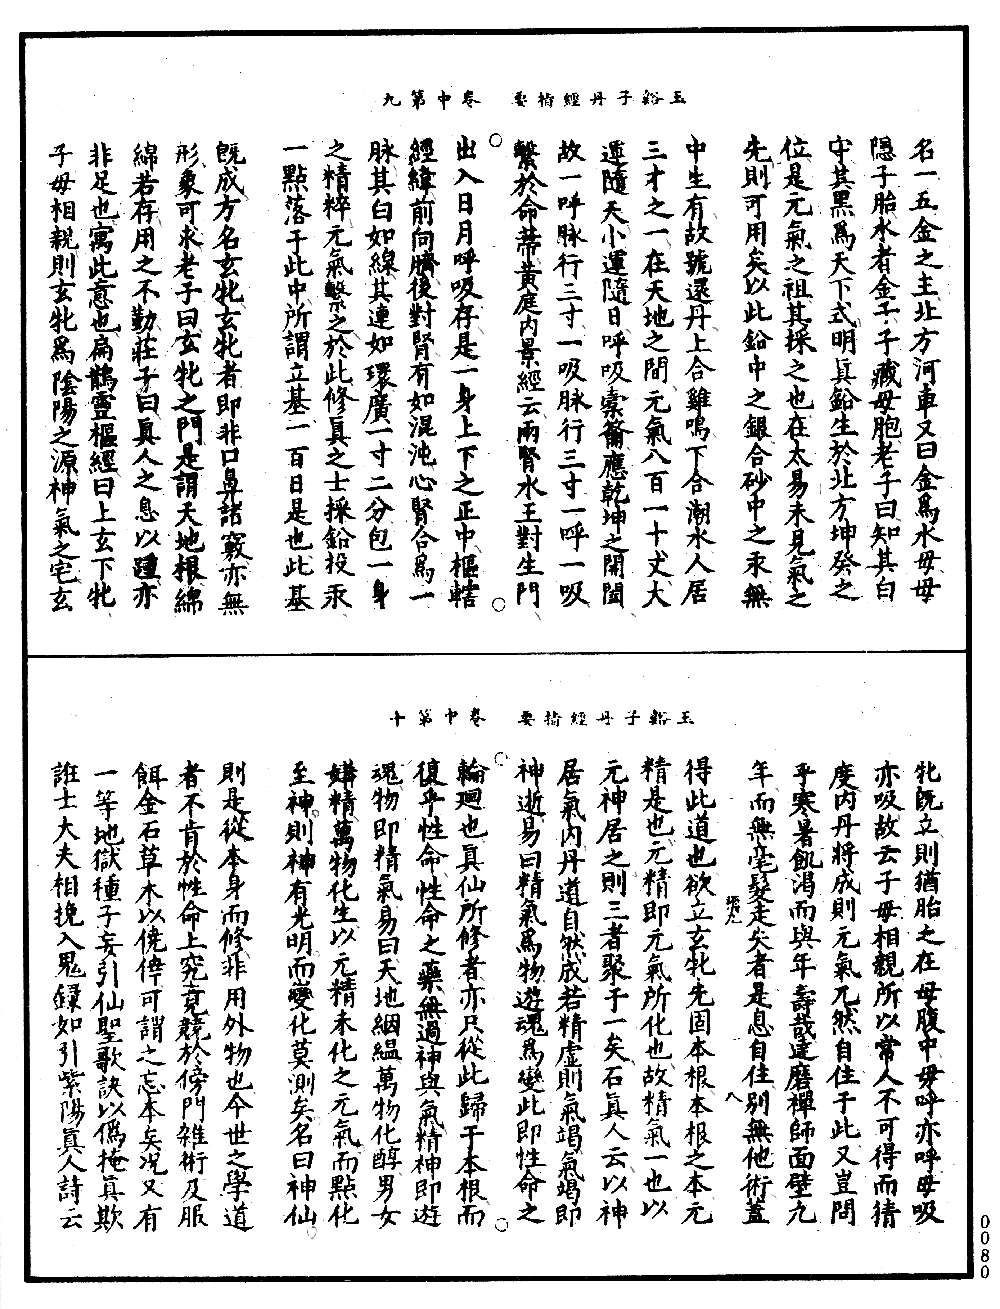 玉谿子丹經指要　卷中第九
名一五金之主北方河車又曰金為水母母
隱子胎水者金子子藏母胞老子曰知其白
守其黑為天下式明真鉛生於北方坤癸之
位是元氣之祖其採之也在太易未見氣之
先則可用矣以此鉛中之銀合砂中之汞無
中生有故號還丹上合雞鳴下合潮水人居
三才之一在天地之間元氣八百一十丈大
運隨天小運隨日呼吸橐籥應乾坤之闔闢
故一呼脉行三寸一吸脉行三寸一呼一吸
繫於命蒂黃庭內景經云兩腎水王對生門
出入日月呼吸存是一身上下之正中樞轄
經緯前向臍後對腎有如混沌心腎合為一
脉其白如線其連如環廣一寸二分包一身
之精粹元氣繫之於此修真之士採鉛投汞
一點落于此中所謂立基一百日是也此基
既成方名玄牝玄牝者即非口鼻諸竅亦無
形象可求老子曰玄牝之門是謂天地根綿
綿若存用之不勤莊子曰真人之息以踵亦
非足也寓此意也扁鵲靈樞經曰上玄下牝
子母相親則玄牝為陰陽之源神氣之宅玄
玉谿子丹經指要　卷中第十
牝既立則猶胎之在母腹中母呼亦呼母吸
亦吸故云子母相親所以常人不可得而猜
度內丹將成則元氣兀然自住于此又豈問
乎寒暑飢渴而與年壽哉達磨禪師面壁九
年而無毫髮走失者是息自住別無他術蓋
得此道也欲立玄牝先固本根本根之本元
精是也元精即元氣所化也故精氣一也以
元神居之則三者聚于一矣石真人云以神
居氣內丹道自然成若精虛則氣竭氣竭即
神逝易曰精氣為物遊魂為變此即性命之
輪迴也真仙所修者亦只從此歸于本根而
復乎性命性命之藥無過神與氣精神即遊
魂物即精氣易曰天地絪縕萬物化醇男女
媾精萬物化生以元精未化之元氣而點化
至神則神有光明而變化莫測矣名曰神仙
則是從本身而修非用外物也今世之學道
者不肯於性命上究竟競於傍門雜術及服
餌金石草木以僥倖可謂之忘本矣況又有
一等地獄種子妄引仙聖歌訣以偽掩真欺
誑士大夫相挽入鬼錄如引紫陽真人詩云
0080